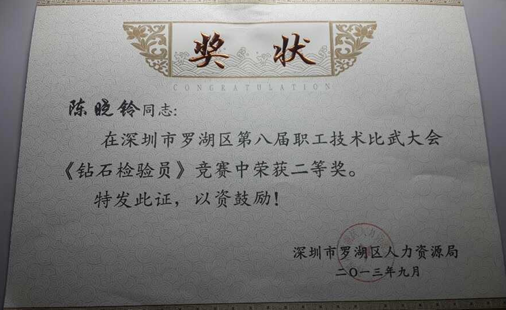 奖状
CONGRATULATION
陈晓铃同志:
在深圳市罗湖区第八届职工技术比武大会
《钻石检验员》竞赛中荣获二等奖。
特发此证,以资鼓励!
深圳市罗湖区人力资源局
二〇一三年九月